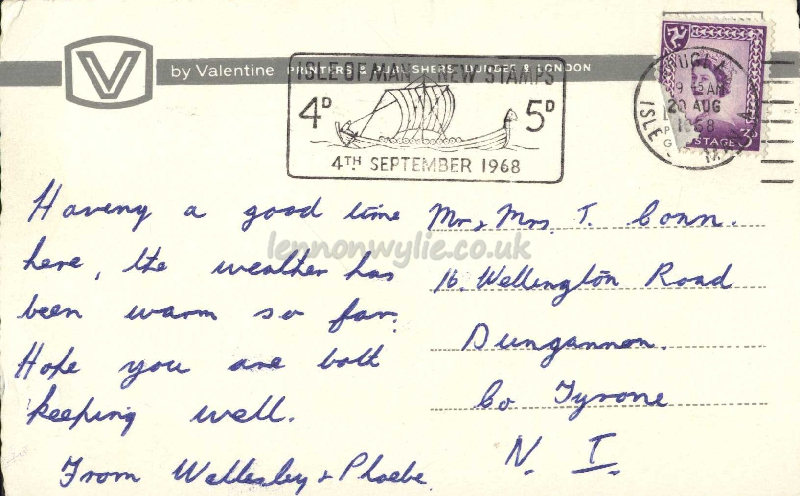 V
by Valentine PRINTERS & PUBLISHERS, DUNDEE & LONDON
ISLE OF MAN NEW STAMPS
4D 5D
4TH SEPTEMBER 1968
9 15 AM
20 AUG
1968
ISLE
MAN
POSTAGE 3D
Having a good time
here, the weather has
been warm so far.
Hope you are both
keeping well.
From Wellesley & Phoebe.
Mr & Mrs. T. Conn.
16, Wellington Road
Dungannon.
Co Tyrone
N. I.
lennonwylie.co.uk